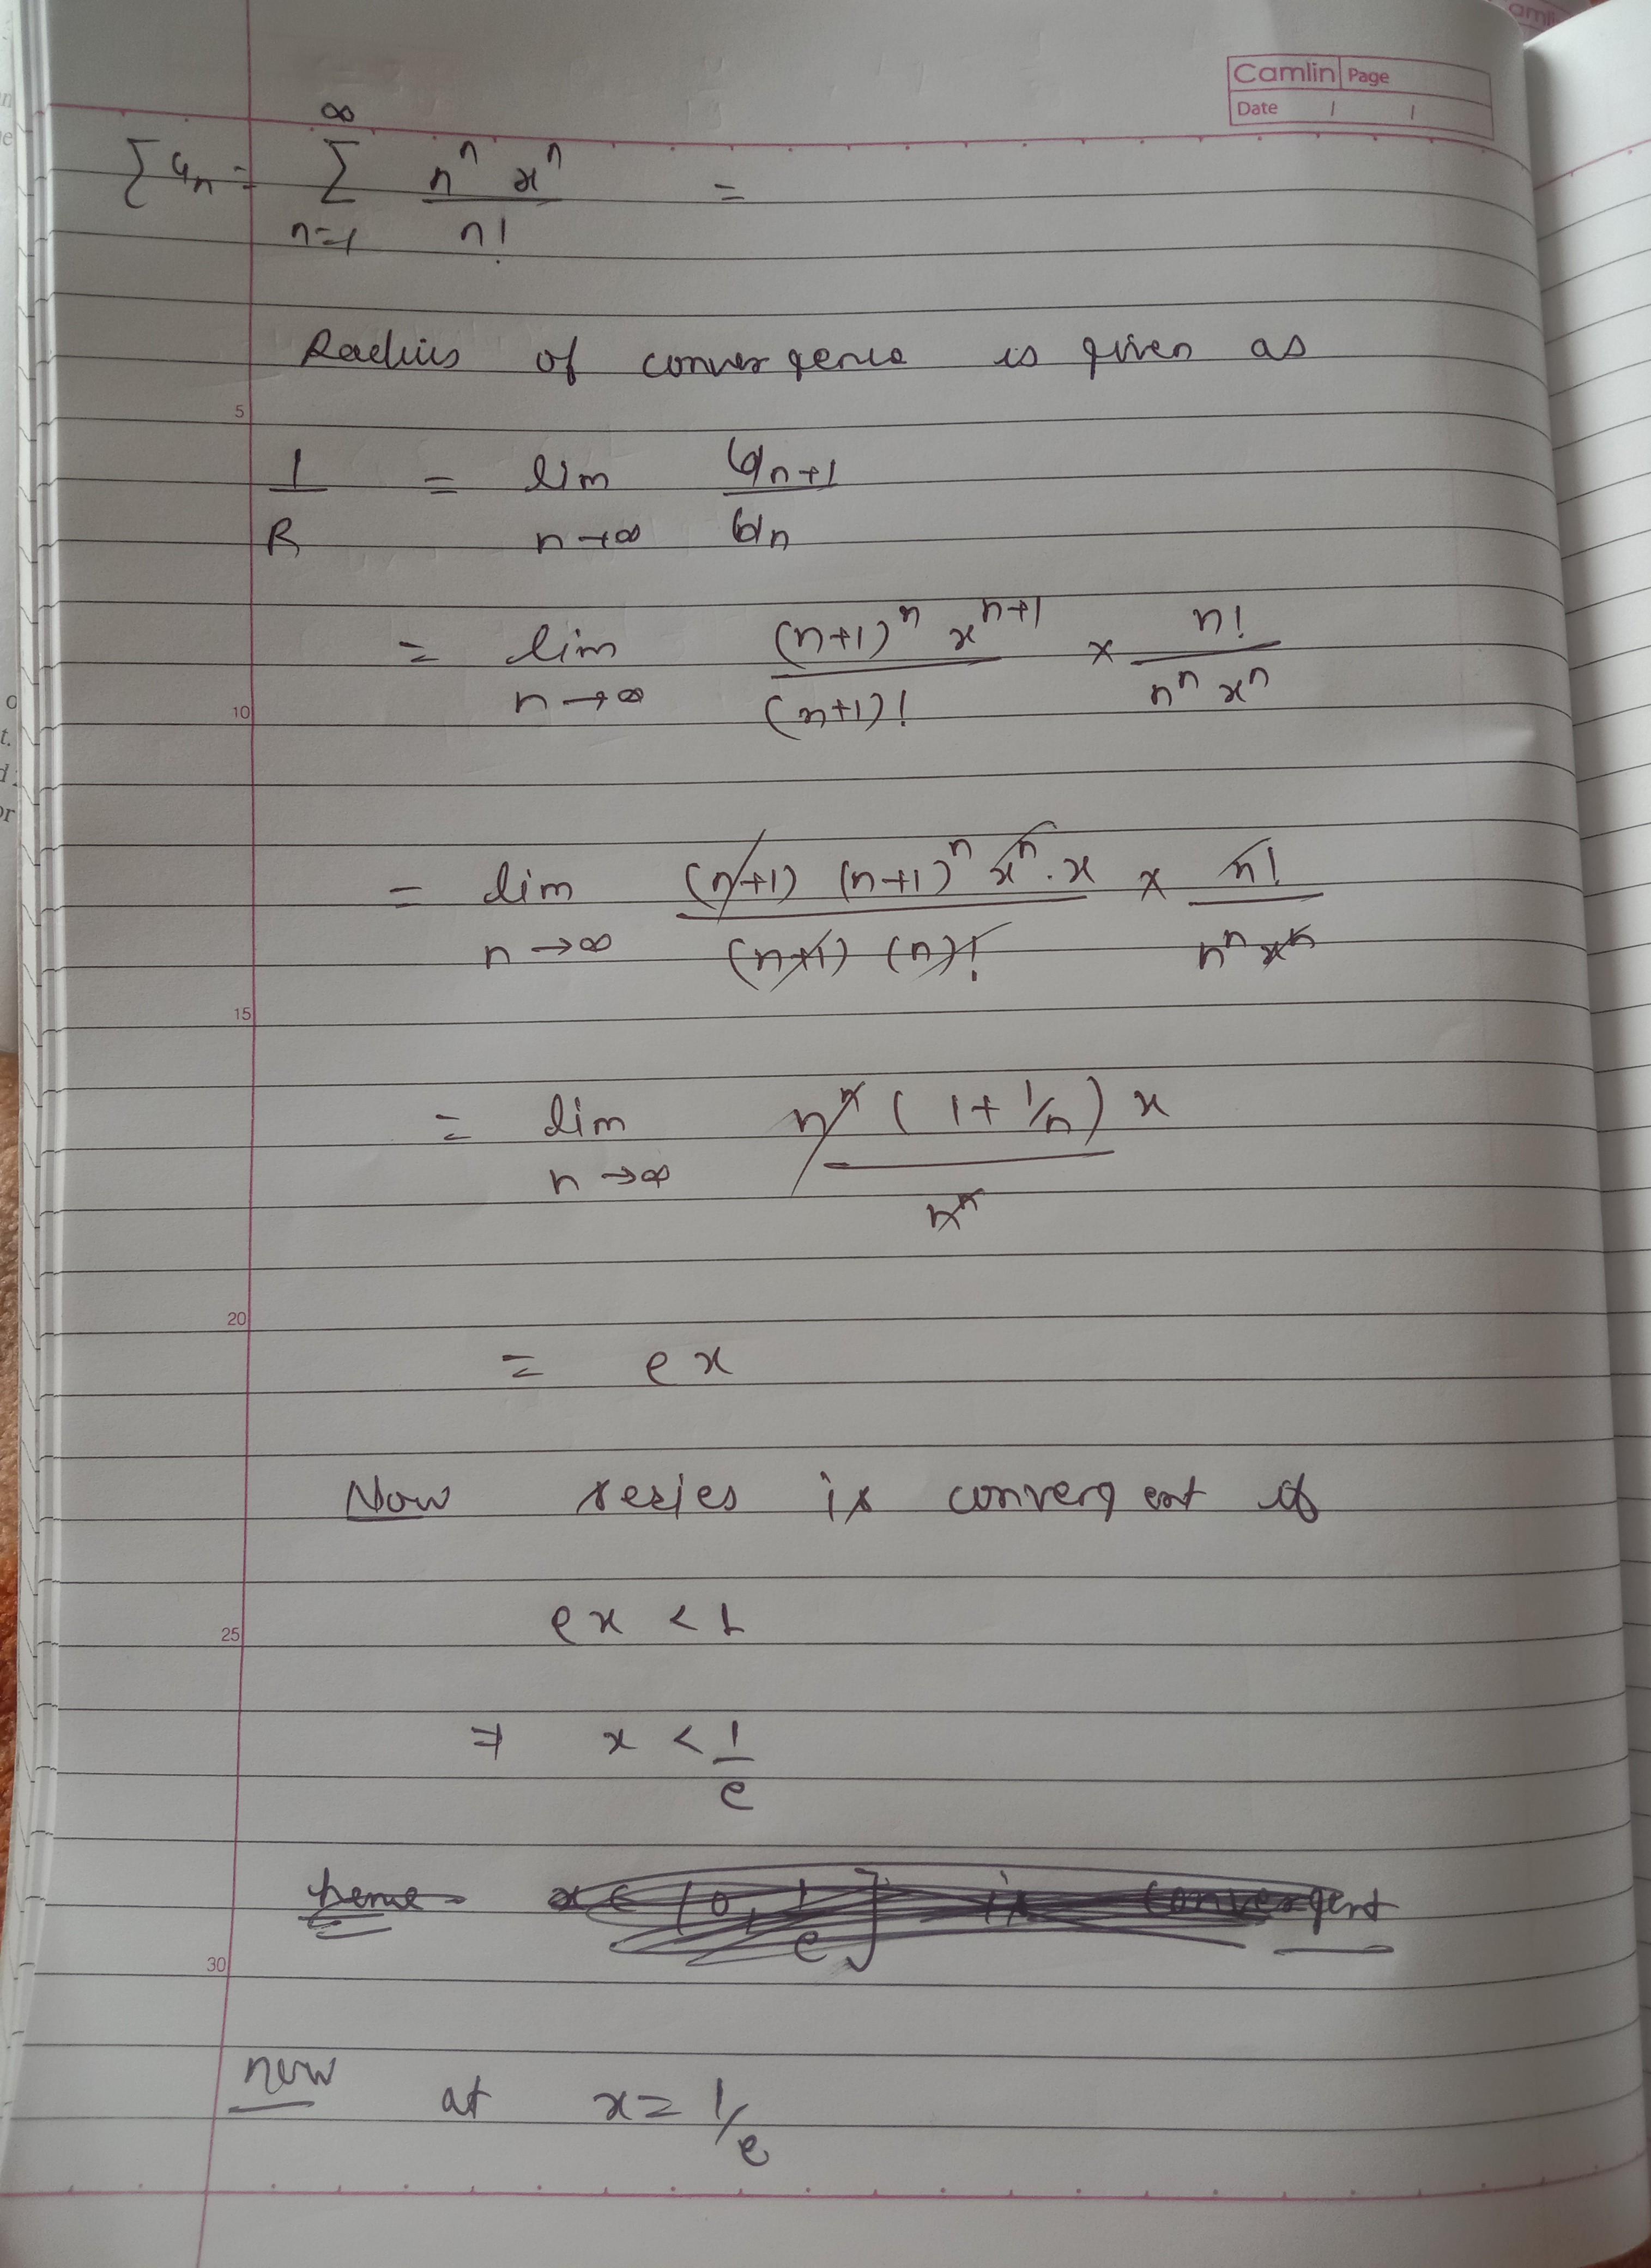 Camlin Page
Date / /
Σ u_n = Σ_{n=1}^{∞} n^n x^n / n! =
Radius of convergence is given as
5
1/R = lim_{n→∞} u_{n+1} / u_n
= lim_{n→∞} (n+1)^n x^{n+1} / (n+1)! × n! / n^n x^n
10
= lim_{n→∞} (n+1) (n+1)^n x^n . x / (n+1) (n)! × n! / n^n x^n
15
= lim_{n→∞} n^n (1 + 1/n) x / n^n
20
= e x
Now series is convergent if
ex < 1
25
⇒ x < 1/e
hence x ∈ [0, 1/e] is convergent
30
now at x = 1/e